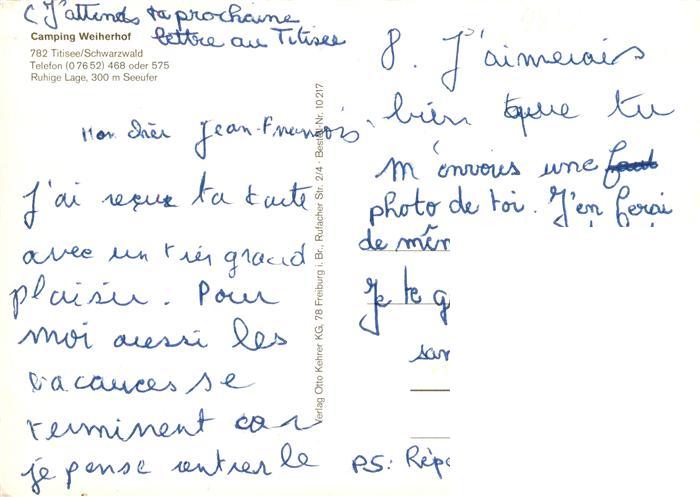 ( J'attends ta prochaine
lettre au Titisee
Camping Weiherhof
782 Titisee/Schwarzwald
Telefon (0 76 52) 468 oder 575
Ruhige Lage, 300 m Seeufer
Mon cher Jean-François,
J'ai reçue ta carte
avec un très grand
plaisir. Pour
moi aussi les
vacances se
terminent car
je pense rentrer le
Verlag Otto Kehrer KG, 78 Freiburg i. Br., Rufacher Str. 2/4 · Bestell-Nr. 10 217
8. J'aimerais
bien que tu
m'envois une
photo de toi. J'en ferai
de mêm
Je te g
san
PS: Répo